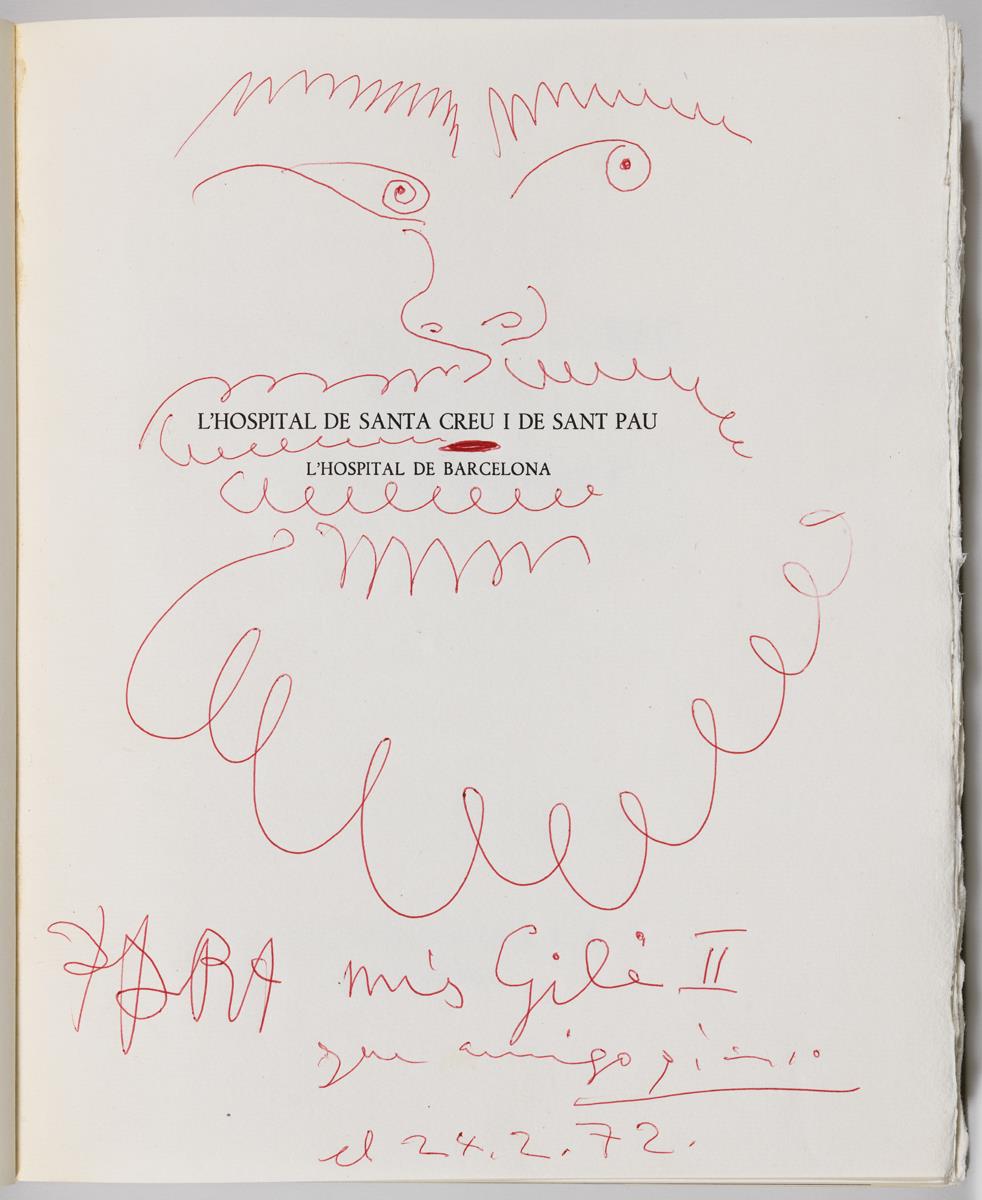 L'HOSPITAL DE SANTA CREU I DE SANT PAU
L'HOSPITAL DE BARCELONA
PARA mis Gili II
amigo
el 24.2.72.